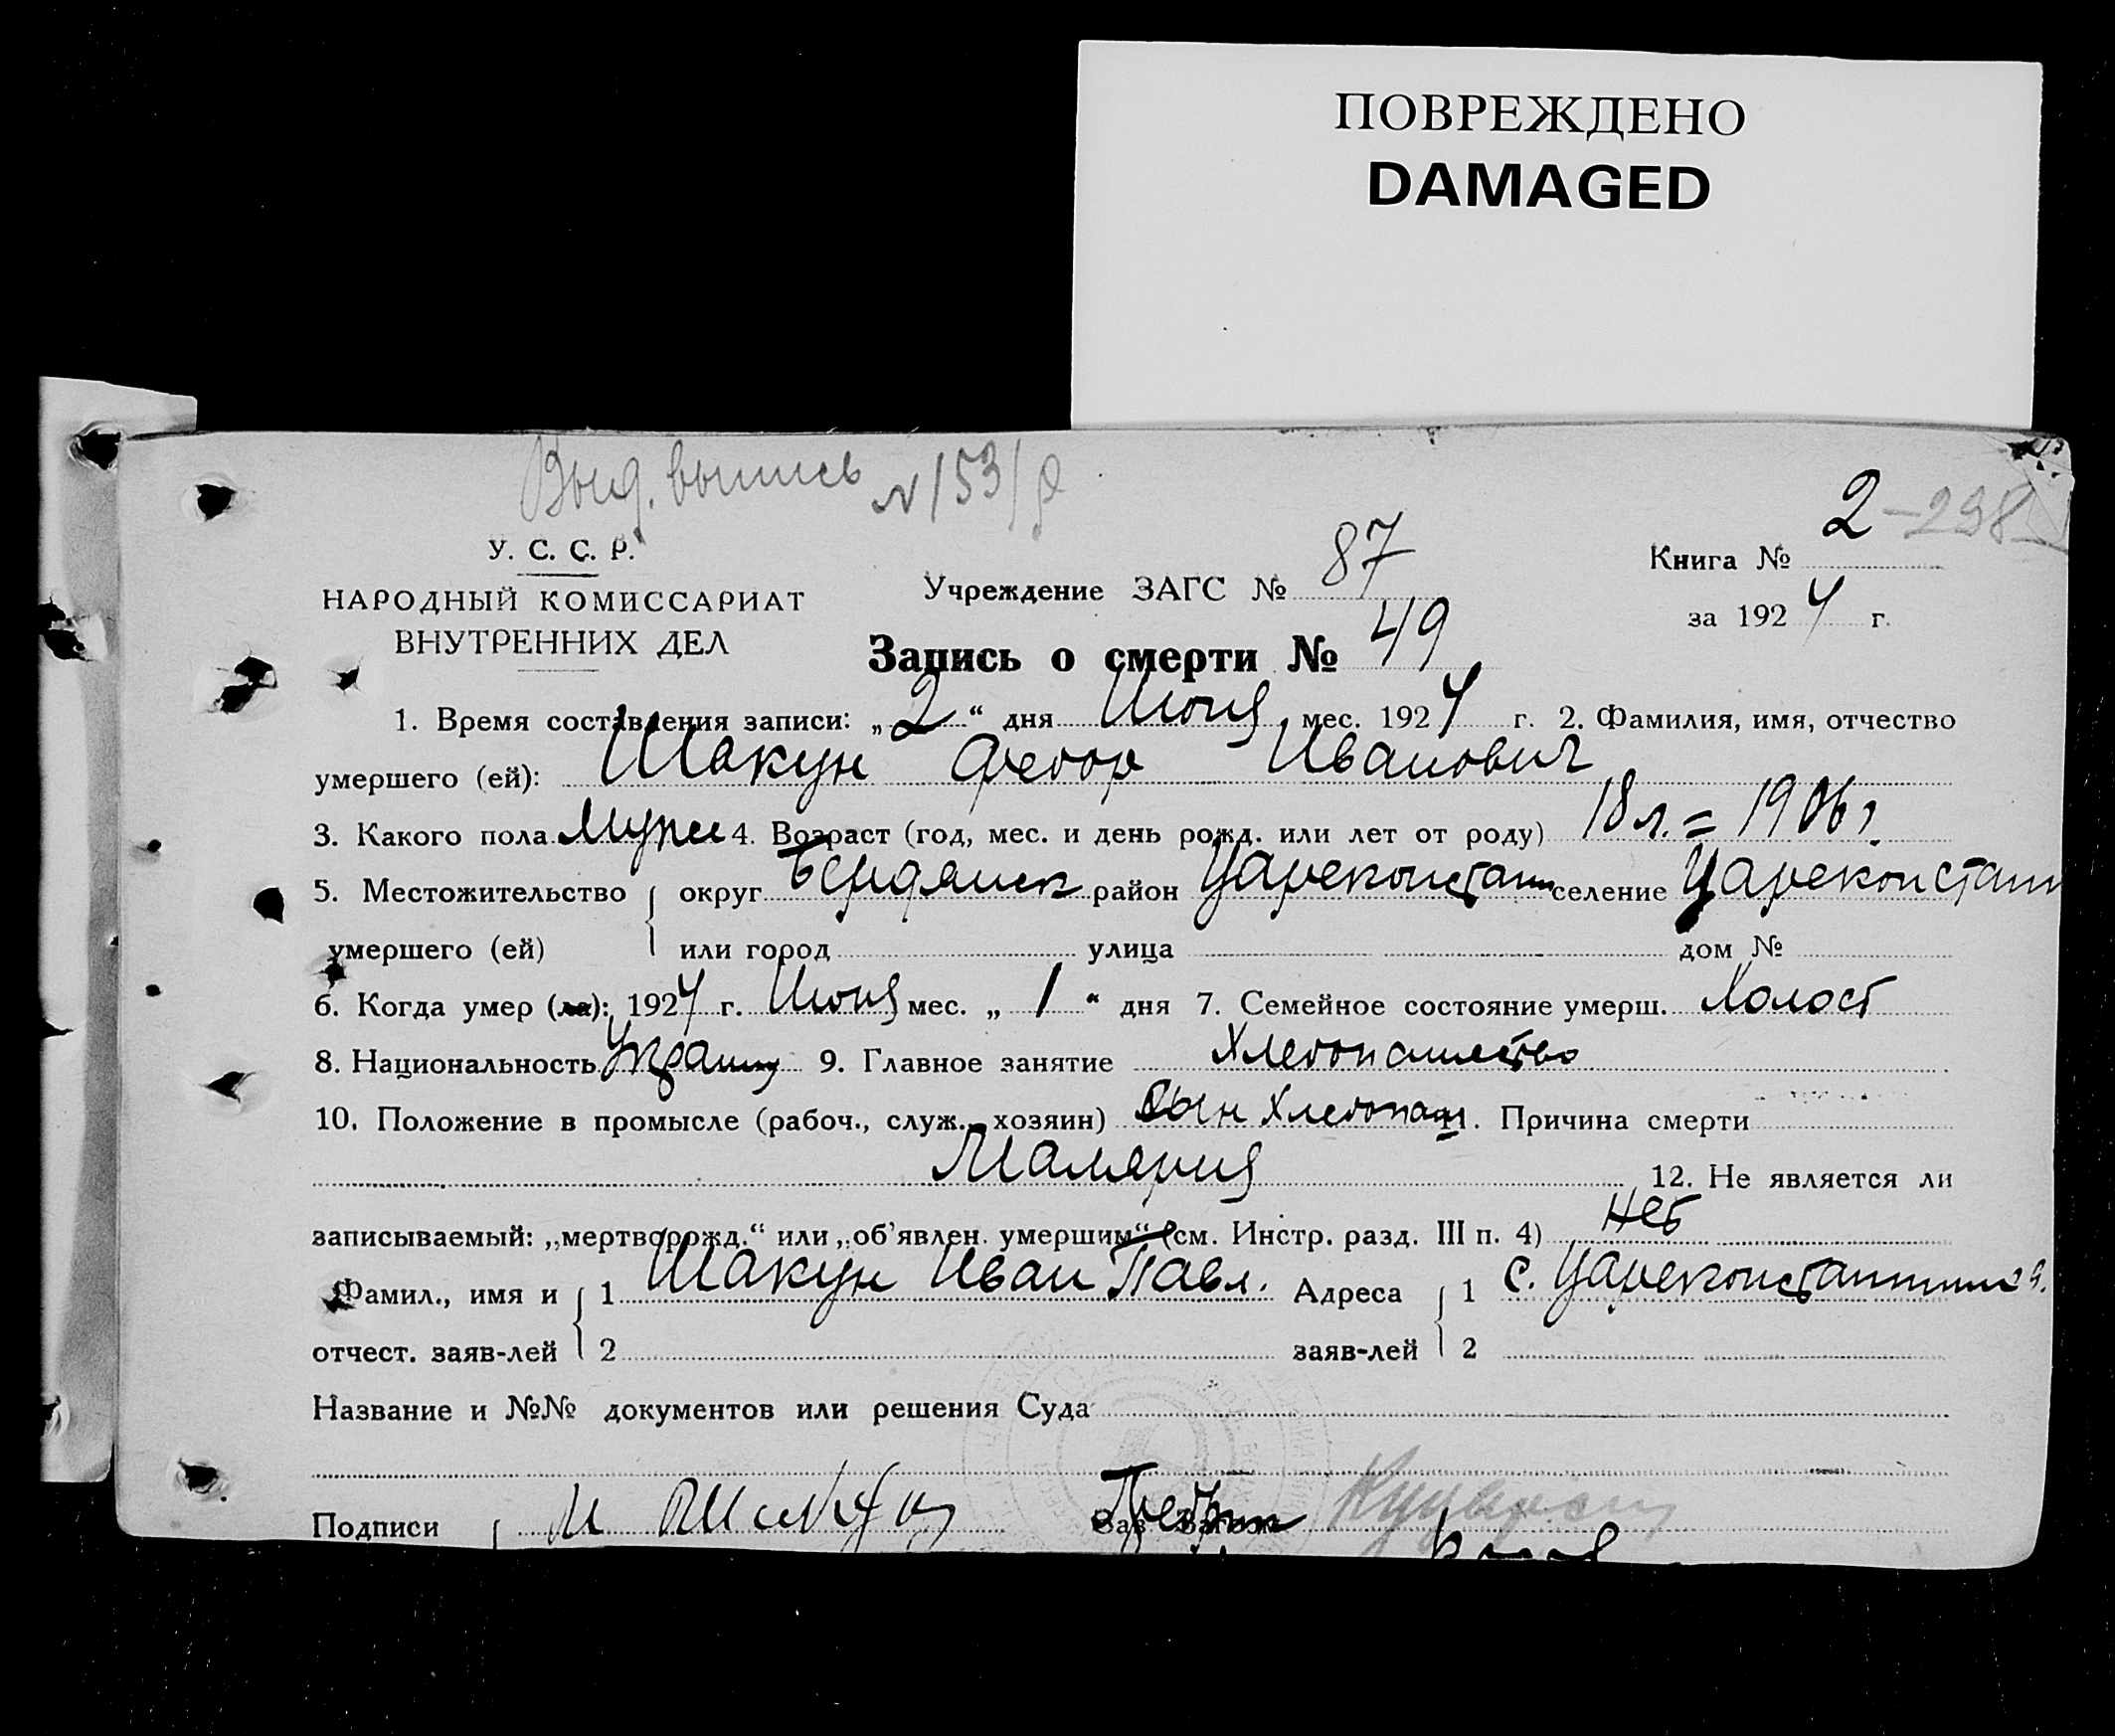 ПОВРЕЖДЕНО
DAMAGED
Выд. выпись № 153/
2 - 238
У. С. С. Р.
НАРОДНЫЙ КОМИССАРИАТ
ВНУТРЕННИХ ДЕЛ
Учреждение ЗАГС № 87
Книга №
за 1924 г.
Запись о смерти № 49
1. Время составления записи: „2“ дня Июня мес. 1924 г. 2. Фамилия, имя, отчество
умершего (ей): Шакун Федор Иванович
3. Какого пола Мужск 4. Возраст (год, мес. и день рожд. или лет от роду) 18 л. = 1906 г.
5. Местожительство округ Бердянск район Цареконстант селение Цареконстант
умершего (ей) или город улица дом №
6. Когда умер (ла): 1924 г. Июня мес. „1“ дня 7. Семейное состояние умерш. Холост
8. Национальность Украин 9. Главное занятие Хлебопашество
10. Положение в промысле (рабоч., служ., хозяин) Сын Хлебопаш 11. Причина смерти
Малярия 12. Не является ли
записываемый: „мертворожд.“ или „об'явлен. умершим“ (см. Инстр. разд. III п. 4) Нет
Фамил., имя и 1 Шакун Иван Павл. Адреса 1 с. Цареконстантиновка.
отчест. заяв-лей 2 заяв-лей 2
Название и №№ документов или решения Суда
Подписи И